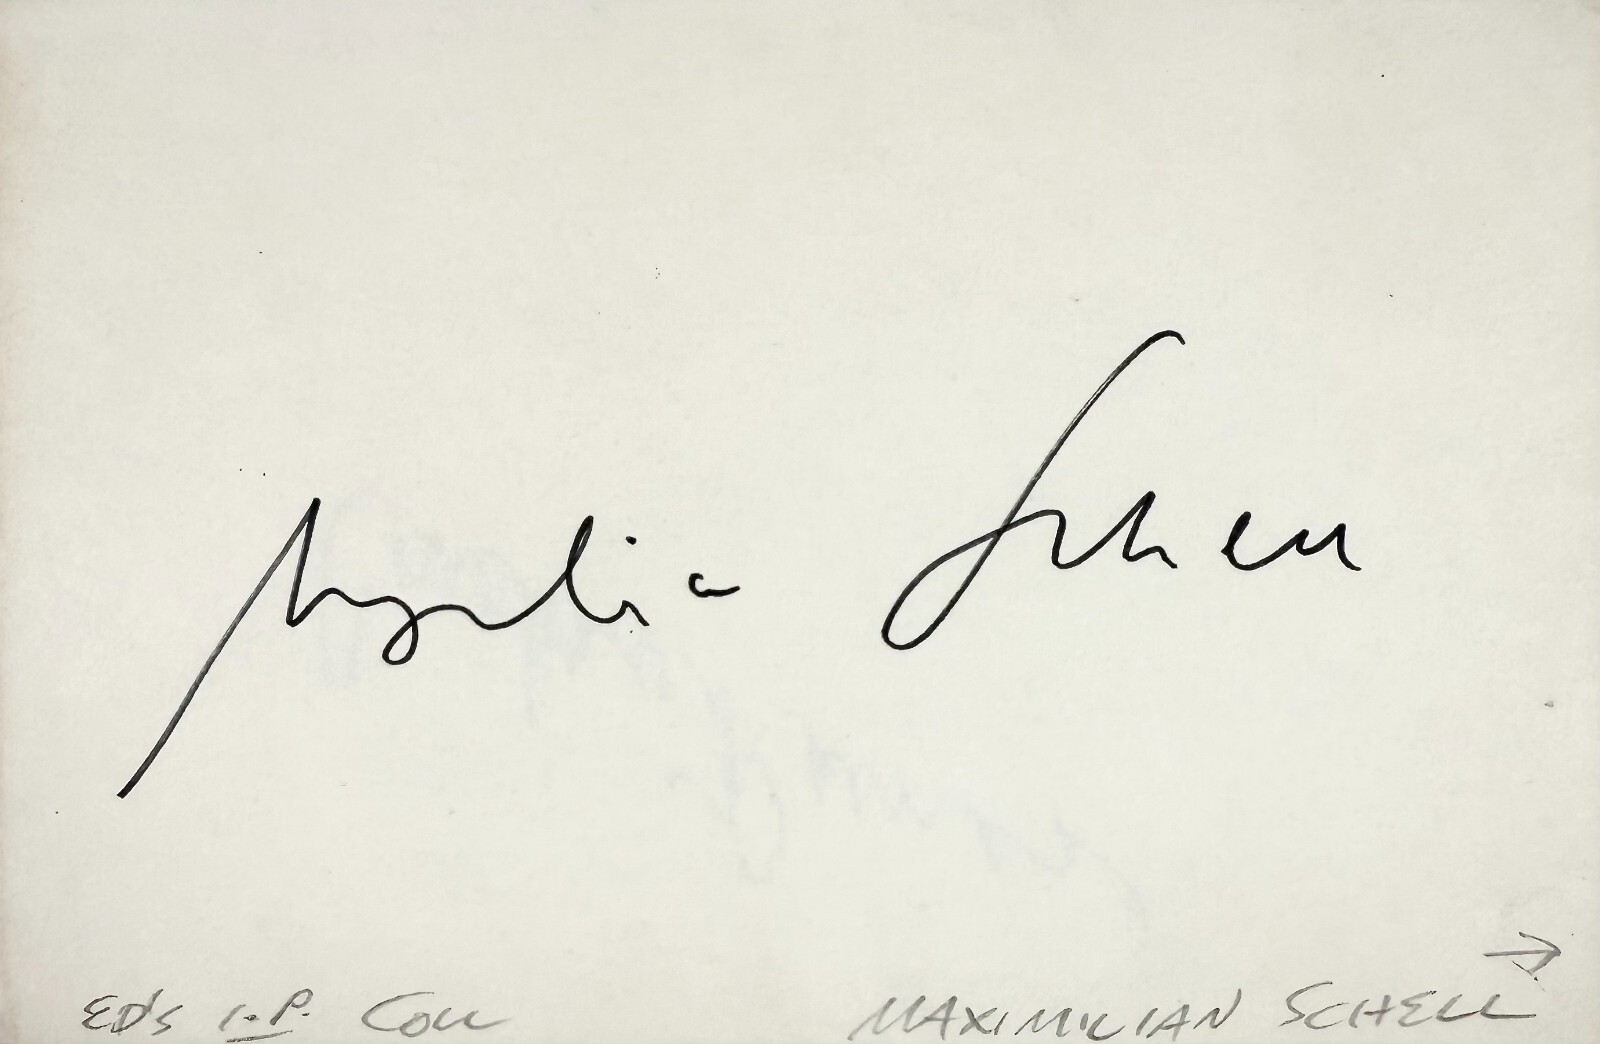 Maximilian Schell
ED'S I.P. COLL MAXIMILIAN SCHELL →